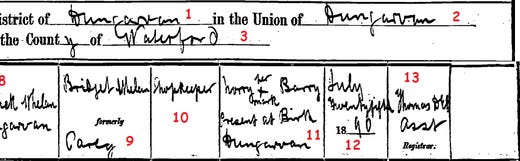 istrict of Dungarvan 1 in the Union of Dungarvan 2
the County of Waterford 3
8 Whelan
ngarvan
Bridget Whelan
formerly
Carey 9
Shopkeeper
10
Norry her Barry
+
mark
Present at Birth
11
Dungarvan
July
Twentyfifth
1890
12
13
Thomas
Asst
Registrar.